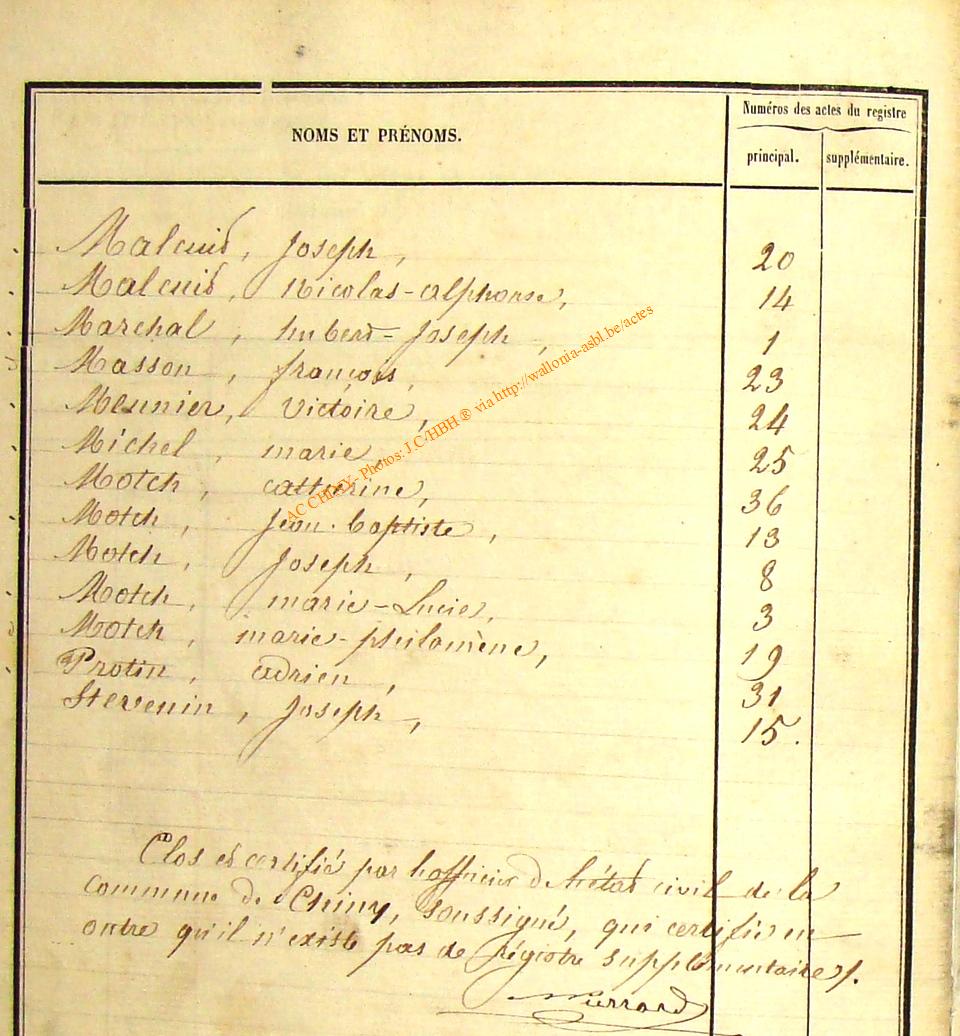 NOMS ET PRÉNOMS.
Numéros des actes du registre
principal.
supplémentaire.
Malcuit, Joseph, 20
Malcuit, Nicolas-alphonse, 14
Marchal, hubert-Joseph, 1
Masson, françois, 23
Meunier, Victoire, 24
Michel, marie, 25
Motch, catherine, 36
Motch, Jean-baptiste, 13
Motch, Joseph, 8
Motch, marie-Lucie, 3
Motch, marie-philomène, 19
Protin, adrien, 31
Stevenin, Joseph, 15.
AC CHINY- Photos: J.C/HBH ® via http://wallonia-asbl.be/actes
Clos et certifié par l'officier de l'état civil de la
commune de Chiny, soussigné, qui certifie en
outre qu'il n'existe pas de régistre supplémentaire /.
Pierrard